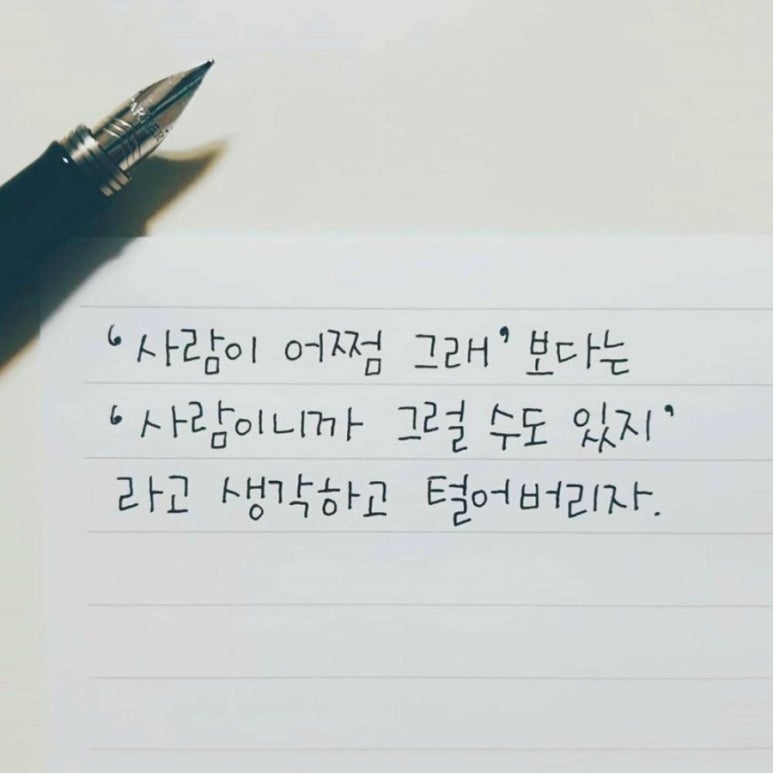 PARKER
‘사람이 어쩜 그래’ 보다는
‘사람이니까 그럴 수도 있지’
라고 생각하고 털어버리자.